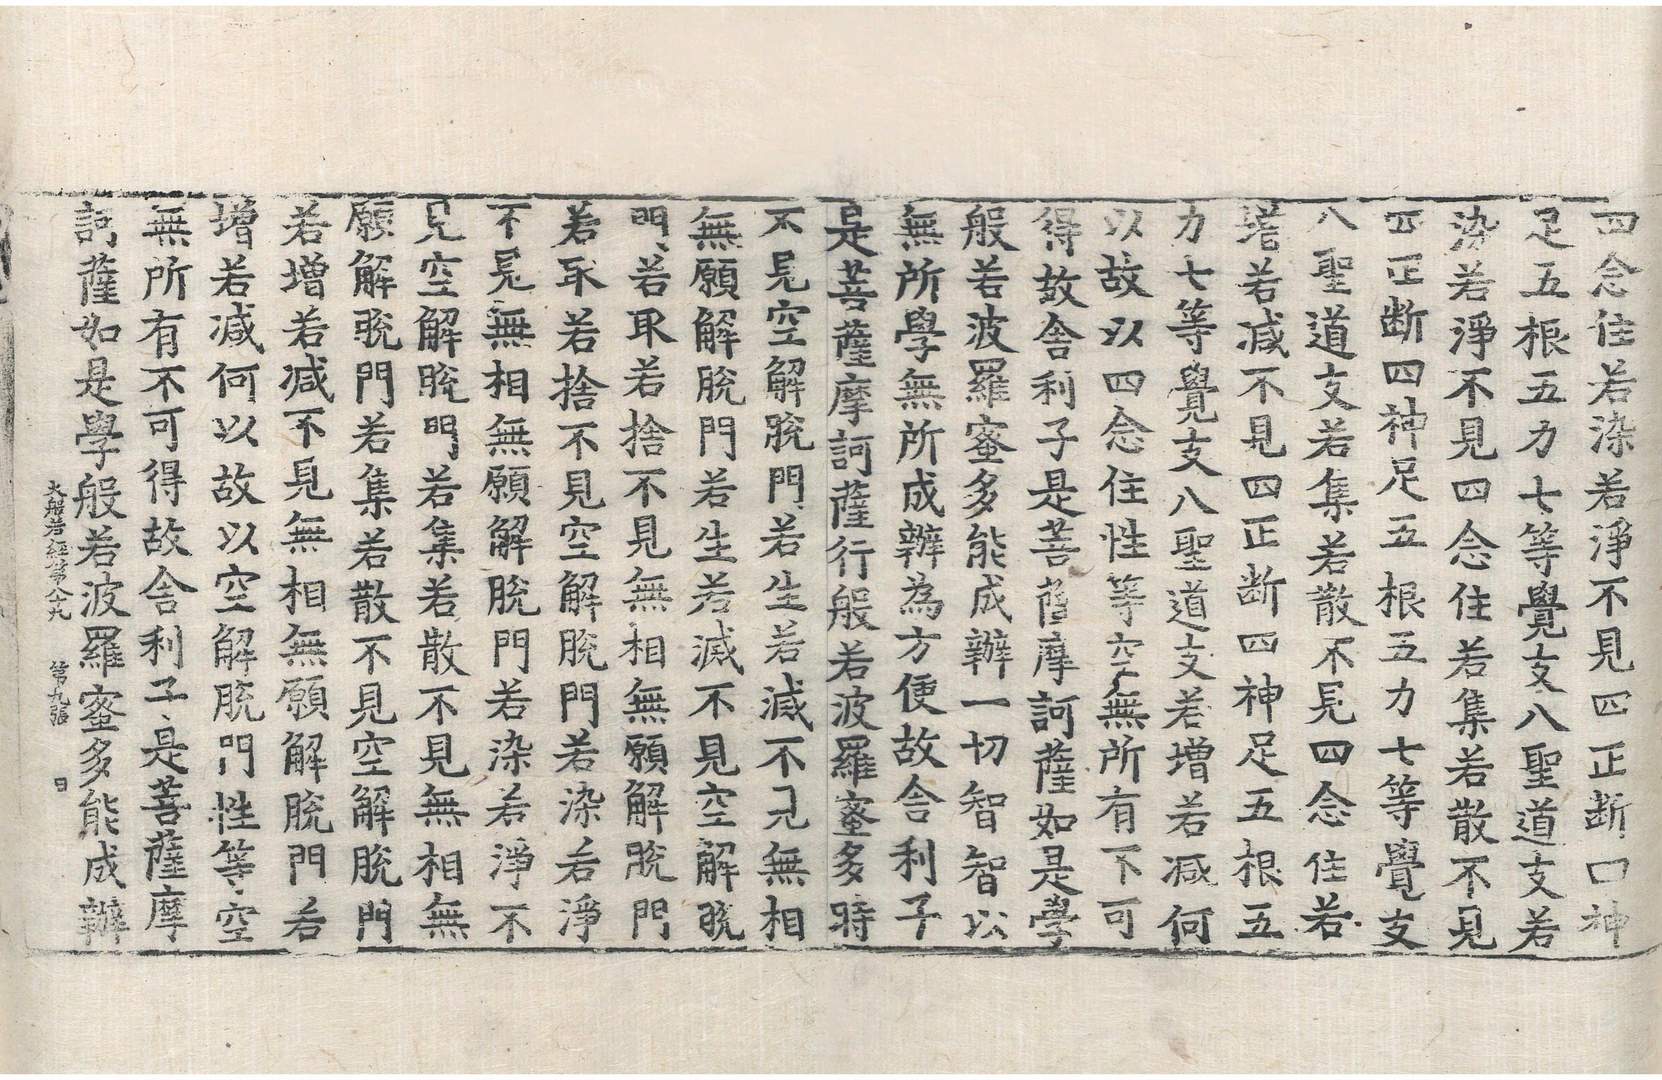 四念住若染若淨不見四正断四神
足五根五力七等覺支八聖道支若
染若淨不見四念住若集若散不見
四正断四神足五根五力七等覺支
八聖道支若集若散不見四念住若
增若减不見四正断四神足五根五
力七等覺支八聖道支若增若减何
以故以四念住性等空無所有不可
得故舎利子是菩薩摩訶薩如是學
般若波羅蜜多能成辦一切智智以
無所學無所成辦為方便故舎利子
是菩薩摩訶薩行般若波羅蜜多時
不見空解脫門若生若減不見無相
無願解脫門若生若滅不見空解脫
門若取若捨不見無相無願解脫門
若取若捨不見空解脫門若染若淨
不見無相無願解脫門若染若淨不
見空解脫門若集若散不見無相無
願解脫門若集若散不見空解脫門
若增若减不見無相無願解脫門若
增若减何以故以空解脫門性等空
無所有不可得故舎利子是菩薩摩
訶薩如是學般若波羅蜜多能成辦
大般若經第八十九 第九張 日